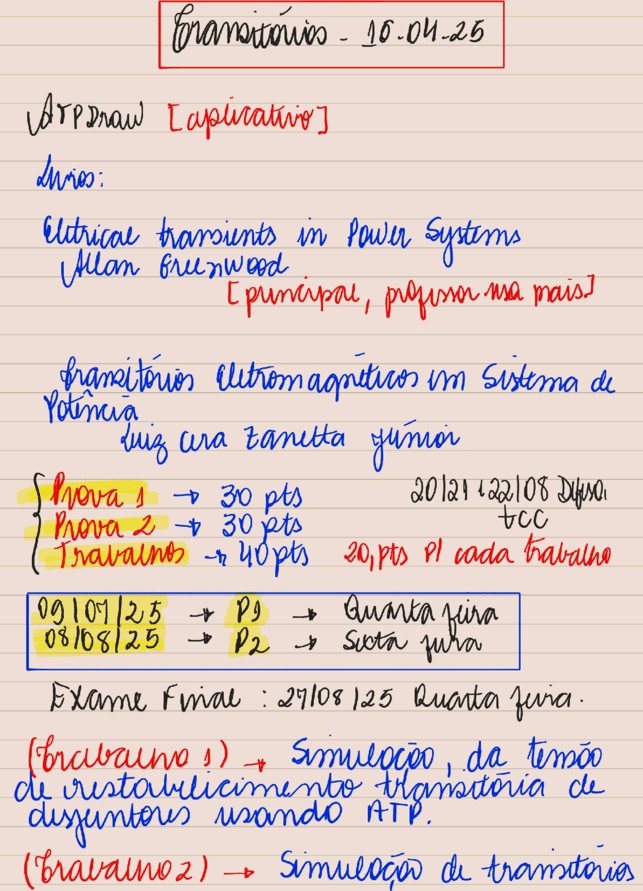 Transitórios - 16-04-25
ATPDraw [aplicativo]
Livros:
Eletrical transients in Power Systems
Allan Greenwood
[principal, professor usa mais]
Transitórios Eletromagnéticos em Sistema de
Potência
Luiz cera Zanetta júnior
Prova 1 → 30 pts
20/21 e 22/08 Defesa
Prova 2 → 30 pts
tcc
Trabalhos → 40 pts 20, pts p/ cada trabalho
09/07/25 → P1 → Quarta feira
08/08/25 → P2 → Sexta feira
Exame Final : 27/08/25 Quarta feira.
(Trabalho 1) → Simulação, da tensão
de restabelecimento transitória de
disjuntores usando ATP.
(Trabalho 2) → Simulação de transitórios